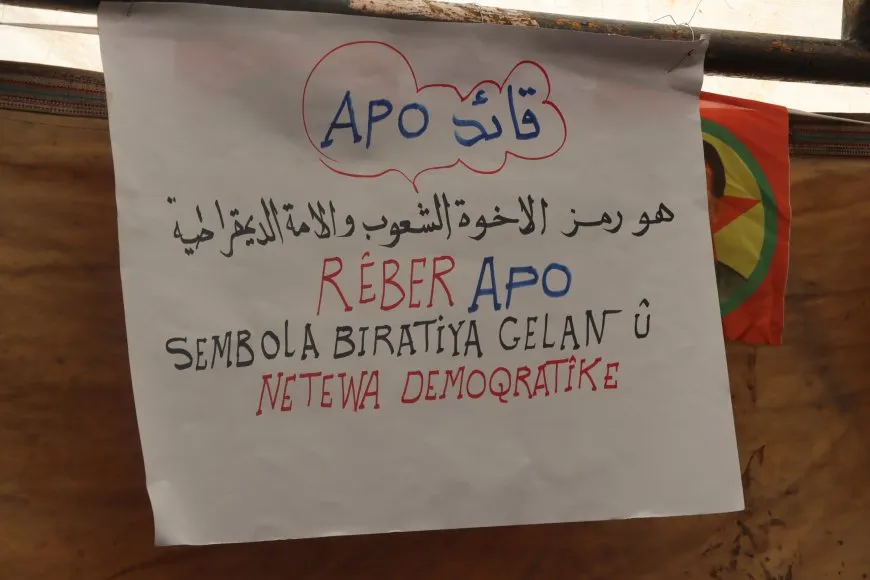 قائد APO
هو رمز الاخوة الشعوب والامة الديمقراطية
RÊBER APO
SEMBOLA BIRATIYA GELAN Û
NETEWA DEMOQRATÎKE